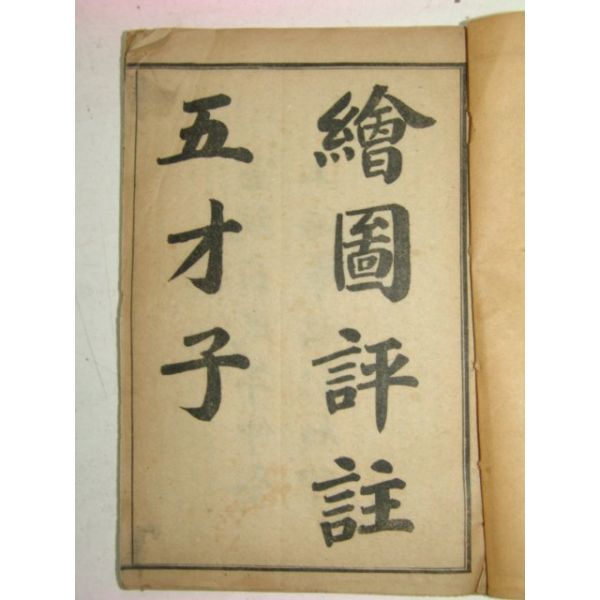 繪圖評註
五才子